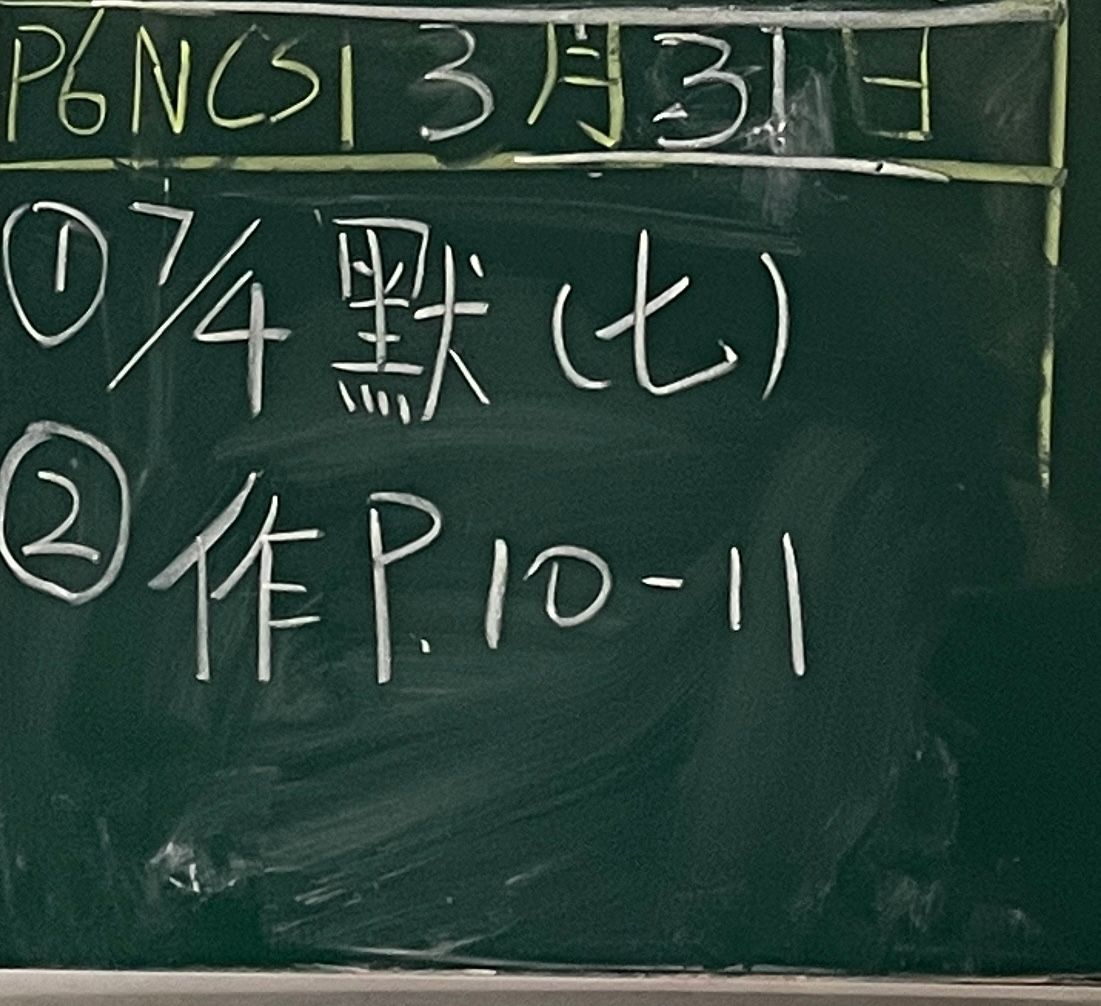 P6NCS1 3月31日
① 7/4 默(七)
② 作P.10-11